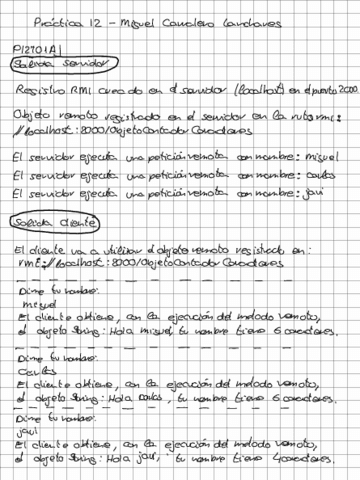 Práctica 12 - Miguel Candares
P12701A1
Salida servidor
Registro RMI creado en el servidor (localhost) en el puerto 2000.
Objeto remoto registrado en el servidor en la ruta rmi:
//localhost:8000/ObjetoContadorCaracteres
El servidor ejecuta una petición remota con nombre: miguel
El servidor ejecuta una petición remota con nombre: carlos
El servidor ejecuta una petición remota con nombre: javi
Salida cliente
El cliente va a utilizar el objeto remoto registrado en:
rmi://localhost:8000/ObjetoContadorCaracteres
Dime tu nombre:
miguel
El cliente obtiene, con la ejecución del metodo remoto,
el objeto String: Hola miguel, tu nombre tiene 6 caracteres.
Dime tu nombre:
Carlos
El cliente obtiene, con la ejecución del metodo remoto,
el objeto String: Hola Carlos, tu nombre tiene 6 caracteres.
Dime tu nombre:
javi
El cliente obtiene, con la ejecución del metodo remoto,
el objeto String: Hola javi, tu nombre tiene 4 caracteres.